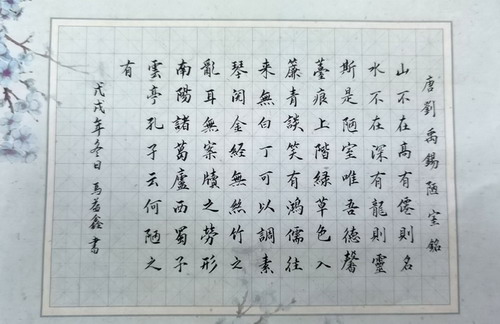 唐劉禹錫陋室銘
山不在高有僊則名
水不在深有龍則靈
斯是陋室唯吾德馨
薹痕上階綠草色入
簾青談笑有鴻儒往
来無白丁可以調素
琴閱金經無絲竹之
亂耳無案牘之勞形
南陽諸葛廬西蜀子
雲亭孔子云何陋之
有
戊戌年冬日馬益鑫書